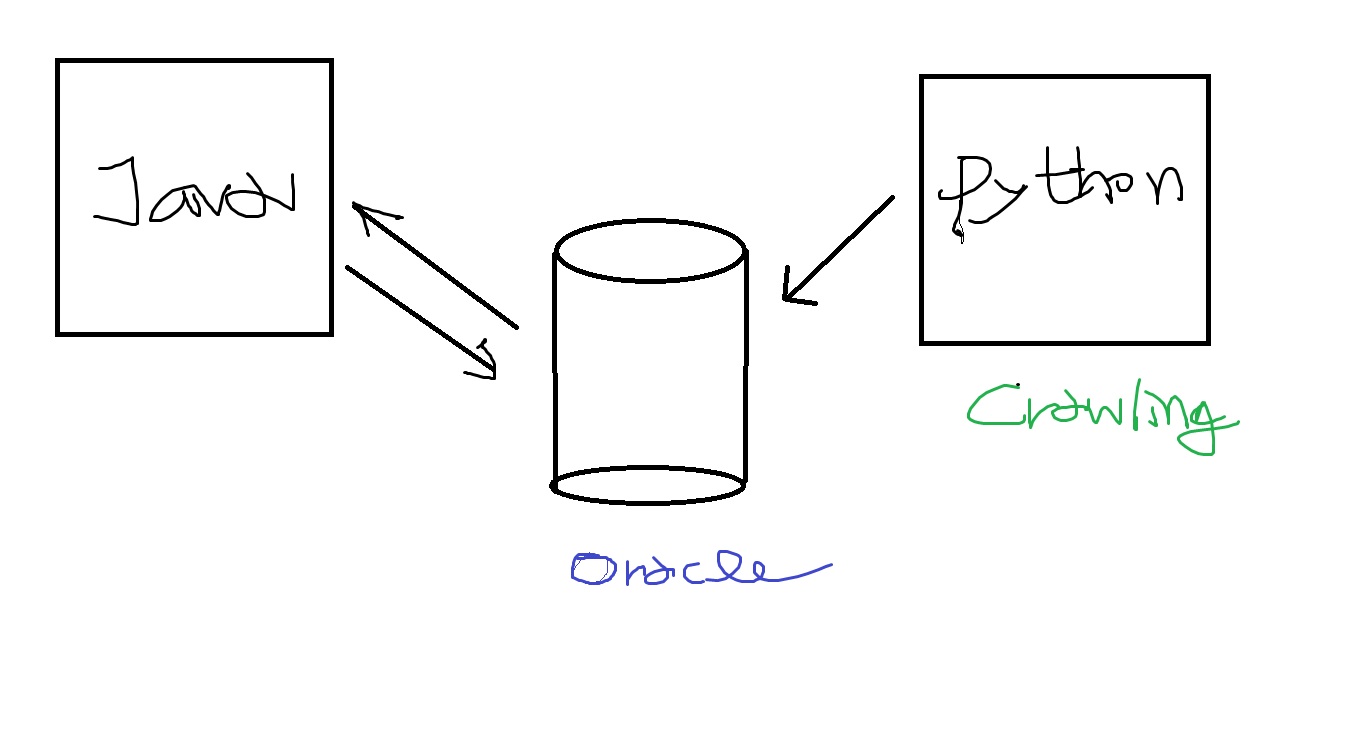 Java
Python
Crawling
Oracle